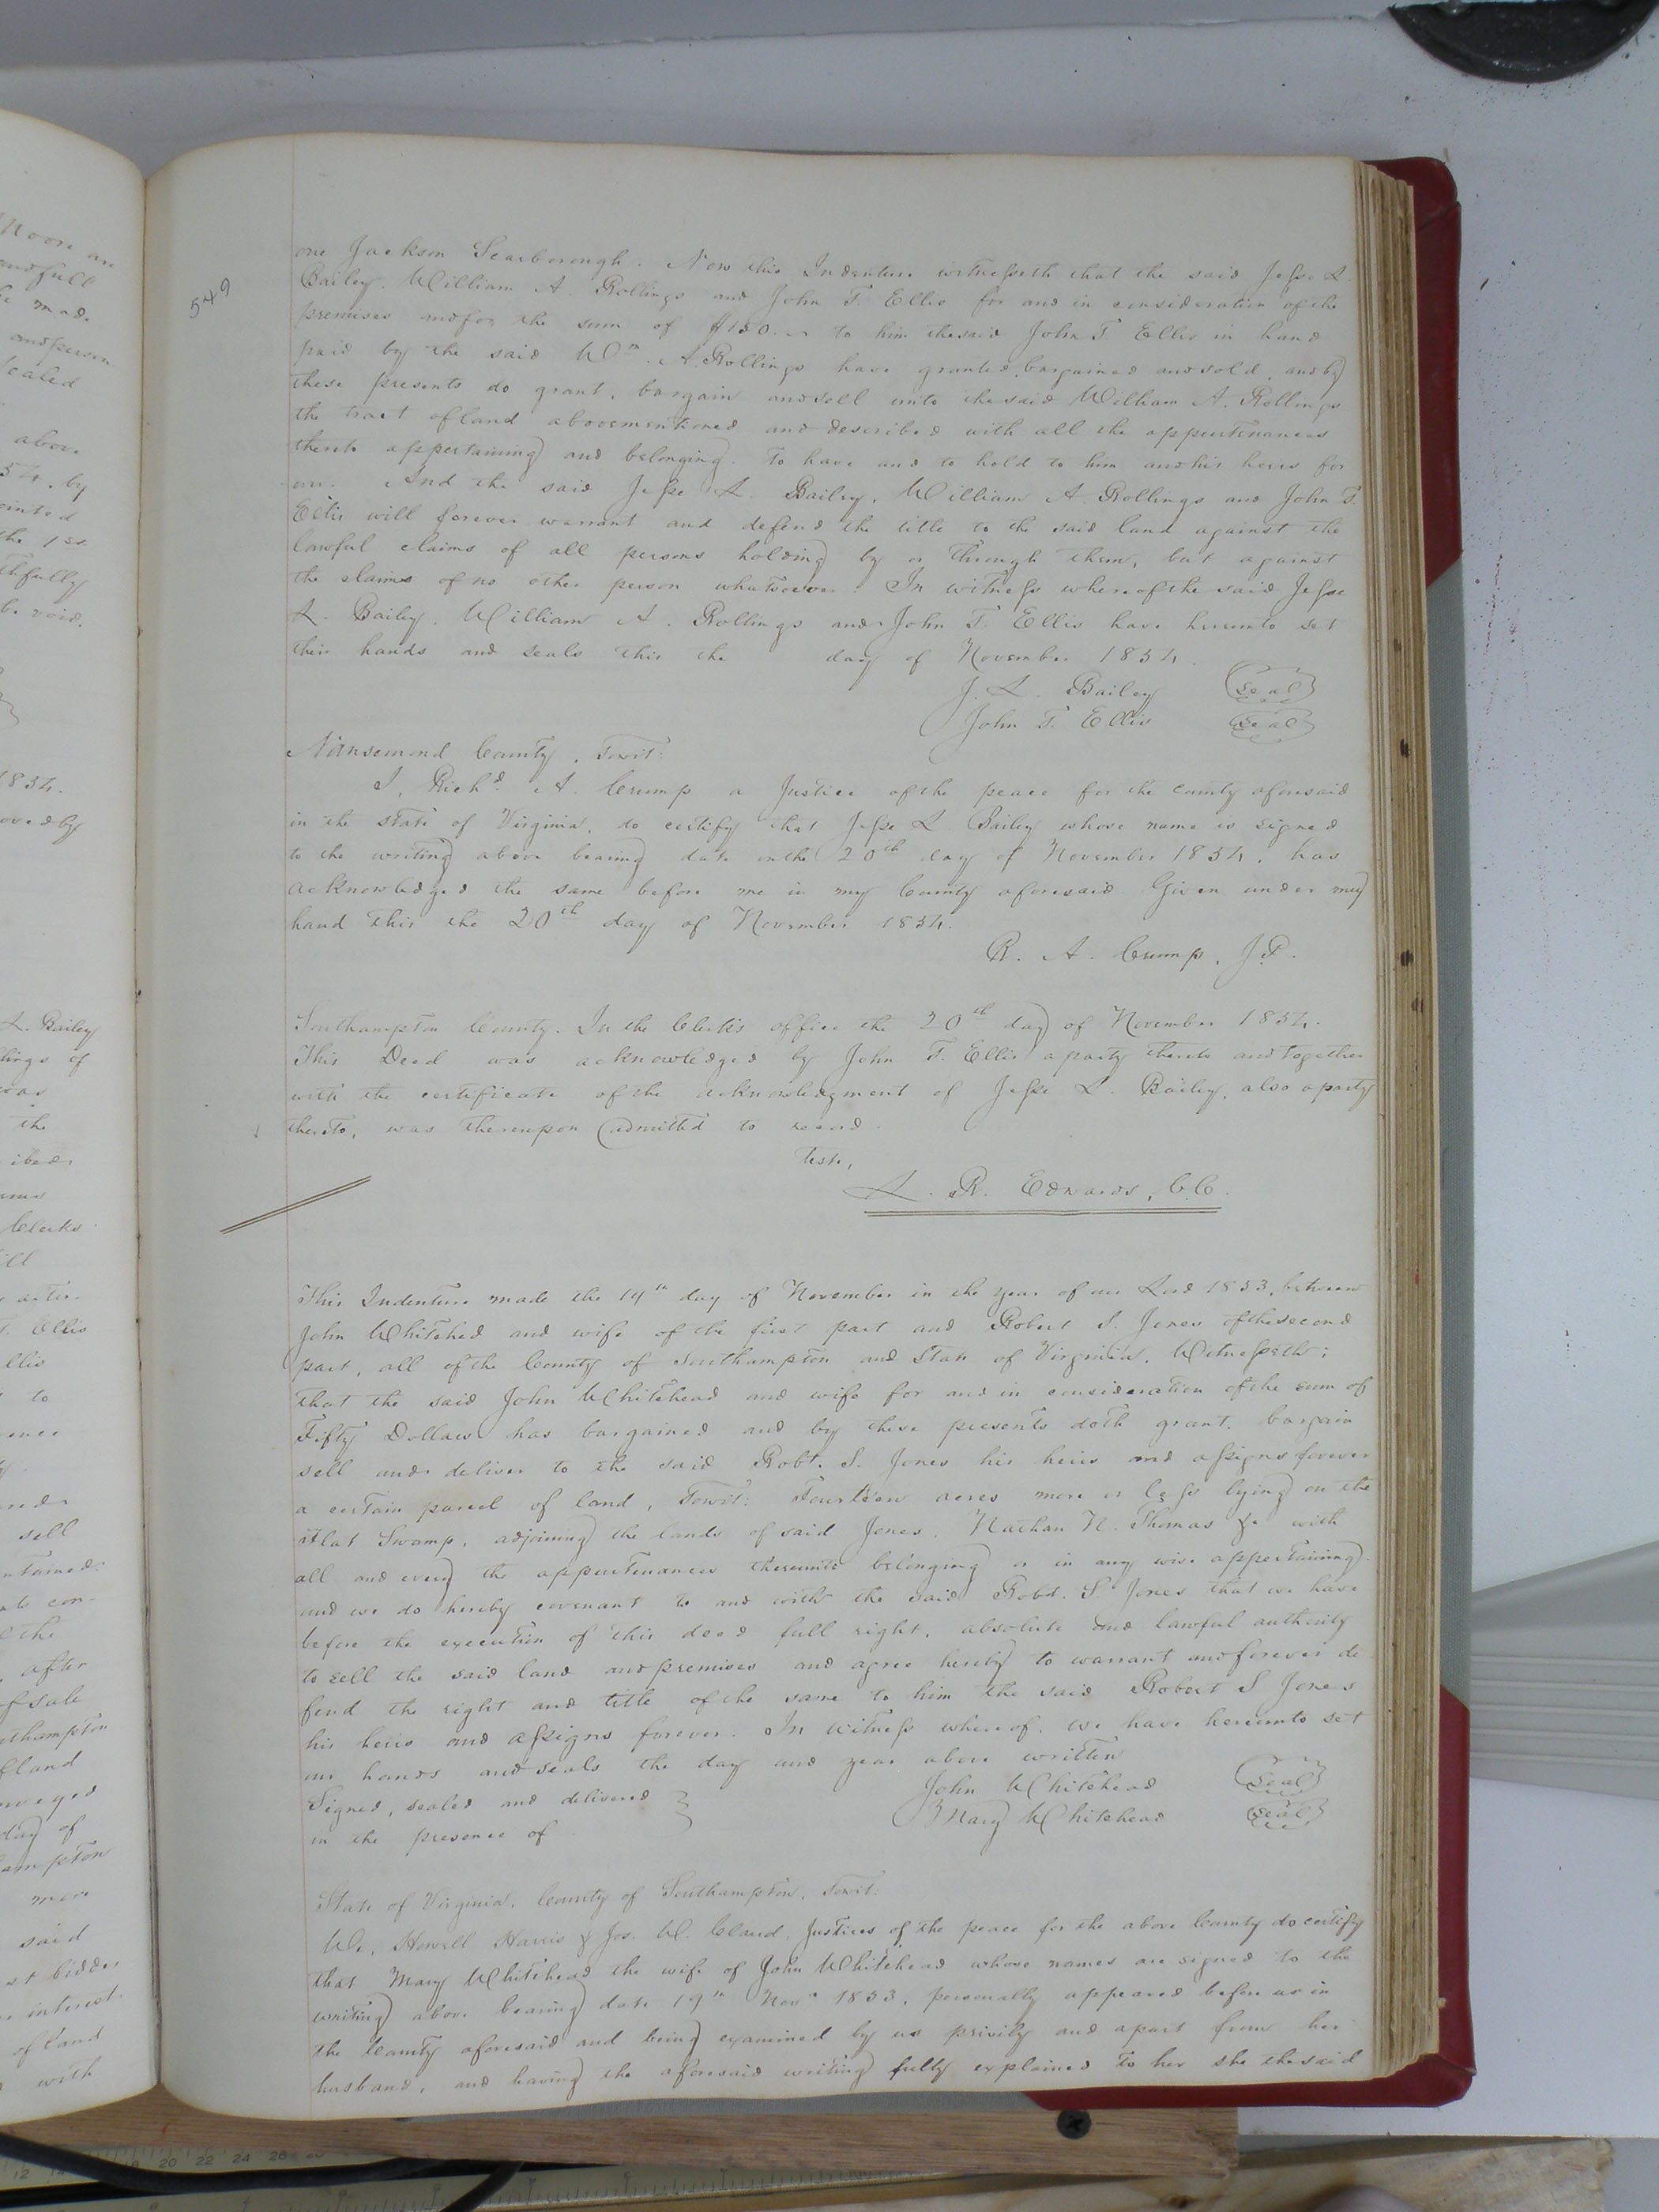 549
one Jackson Scarborough. Now this Indenture witnesseth that the said Jesse L.
Bailey, William A. Rollings and John T. Ellis for and in consideration of the
premises and for the sum of $150.— to him the said John T. Ellis in hand
paid by the said Wm. A. Rollings have granted, bargained and sold, and by
these presents do grant, bargain and sell unto the said William A. Rollings
the tract of land abovementioned and described with all the appurtenances
thereto appertaining and belonging. To have and to hold to him and his heirs for
ever. And the said Jesse L. Bailey, William A. Rollings and John T.
Ellis will forever warrant and defend the title to the said land against the
lawful claims of all persons holding by or through them, but against
the claims of no other person whatsoever. In witness whereof the said Jesse
L. Bailey, William A. Rollings and John T. Ellis have hereunto set
their hands and seals this the day of November 1854.
J. L. Bailey (Seal)
John T. Ellis (Seal)
Nansemond County, Towit:
I, Richd. A. Crump a Justice of the peace for the county aforesaid
in the state of Virginia, do certify that Jesse L. Bailey whose name is signed
to the writing above bearing date on the 20th day of November 1854, has
acknowledged the same before me in my County aforesaid. Given under my
hand this the 20th day of November 1854.
R. A. Crump, J.P.
Southampton County. In the Clerk's office the 20th day of November 1854.
This Deed was acknowledged by John T. Ellis a party thereto and together
with the certificate of the acknowledgment of Jesse L. Bailey, also a party
thereto, was thereupon admitted to record.
Teste,
L. R. Edwards, C.C.
This Indenture made the 19th day of November in the year of our Lord 1853, between
John Whitehed and wife of the first part and Robert S. Jones of the second
part, all of the County of Southampton and State of Virginia, Witnesseth;
that the said John Whitehead and wife for and in consideration of the sum of
Fifty Dollars has bargained and by these presents doth grant, bargain
sell and deliver to the said Robt. S. Jones his heirs and assigns forever
a certain parcel of land, Towit: Fourteen acres more or less lying on the
Flat Swamp, adjoining the lands of said Jones, Nathan N. Thomas &c with
all and every the appurtenances thereunto belonging or in any wise appertaining.
and we do hereby covenant to and with the said Robt. S. Jones that we have
before the execution of this deed full right, absolute and lawful authority
to sell the said land and premises and agree hereby to warrant and forever de
fend the right and title of the same to him the said Robert S Jones
his heirs and assigns forever. In witness whereof, we have hereunto set
our hands and seals the day and year above written
Signed, sealed and delivered } John Whitehead (Seal)
in the presence of Mary Whitehead (Seal)
State of Virginia, County of Southampton, Towit:
We, Howell Harris & Jos. W. Claud, Justices of the peace for the above County do certify
that Mary Whitehead the wife of John Whitehead whose names are signed to the
writing above bearing date 19th Novr 1853, personally appeared before us in
the County aforesaid and being examined by us privily and apart from her
husband, and having the aforesaid writing fully explained to her she the said